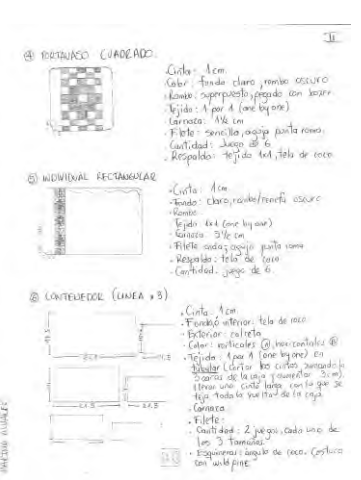 ④ PORTAVASO CUADRADO.
. Cinta: 1cm.
. Color: fondo claro, rombo oscuro
. Rombo: superpuesto, pegado con boxer.
. Tejido: 1 por 1 (one by one)
. Carnaza: 1½ cm
. Filete: sencillo, aguja punta roma.
. Cantidad: Juego de 6
. Respaldo: tejido 1x1, tela de coco
⑤ INDIVIDUAL RECTANGULAR
. Cinta: 1cm
. Fondo: claro, rombo/ oscuro
. Rombo
. Tejido 1x1 (one by one)
. Carnaza 3½ cm
. Filete aguja punta roma
. Respaldo: tela de coco
. Cantidad. juego de 6.
⑥ CONTENEDOR (LINEA x 3)
. Cinta 1cm.
. Fondo, ó interior: tela de coco
. Exterior: calceta
. Color: verticales horizontales
. Tejido: 1 por 1 (one by one) en
tubular (cortar las cintas sumando
3 caras de la caja y aumentar 3cm)
llevar una cinta larga con la que se
teje toda la vuelta de la caja
. Carnaza
. Filete:
. Cantidad: 2 juegos, cada uno de
los 3 tamaños
. Esquineras: angulo de coco. Costura
con wild pine